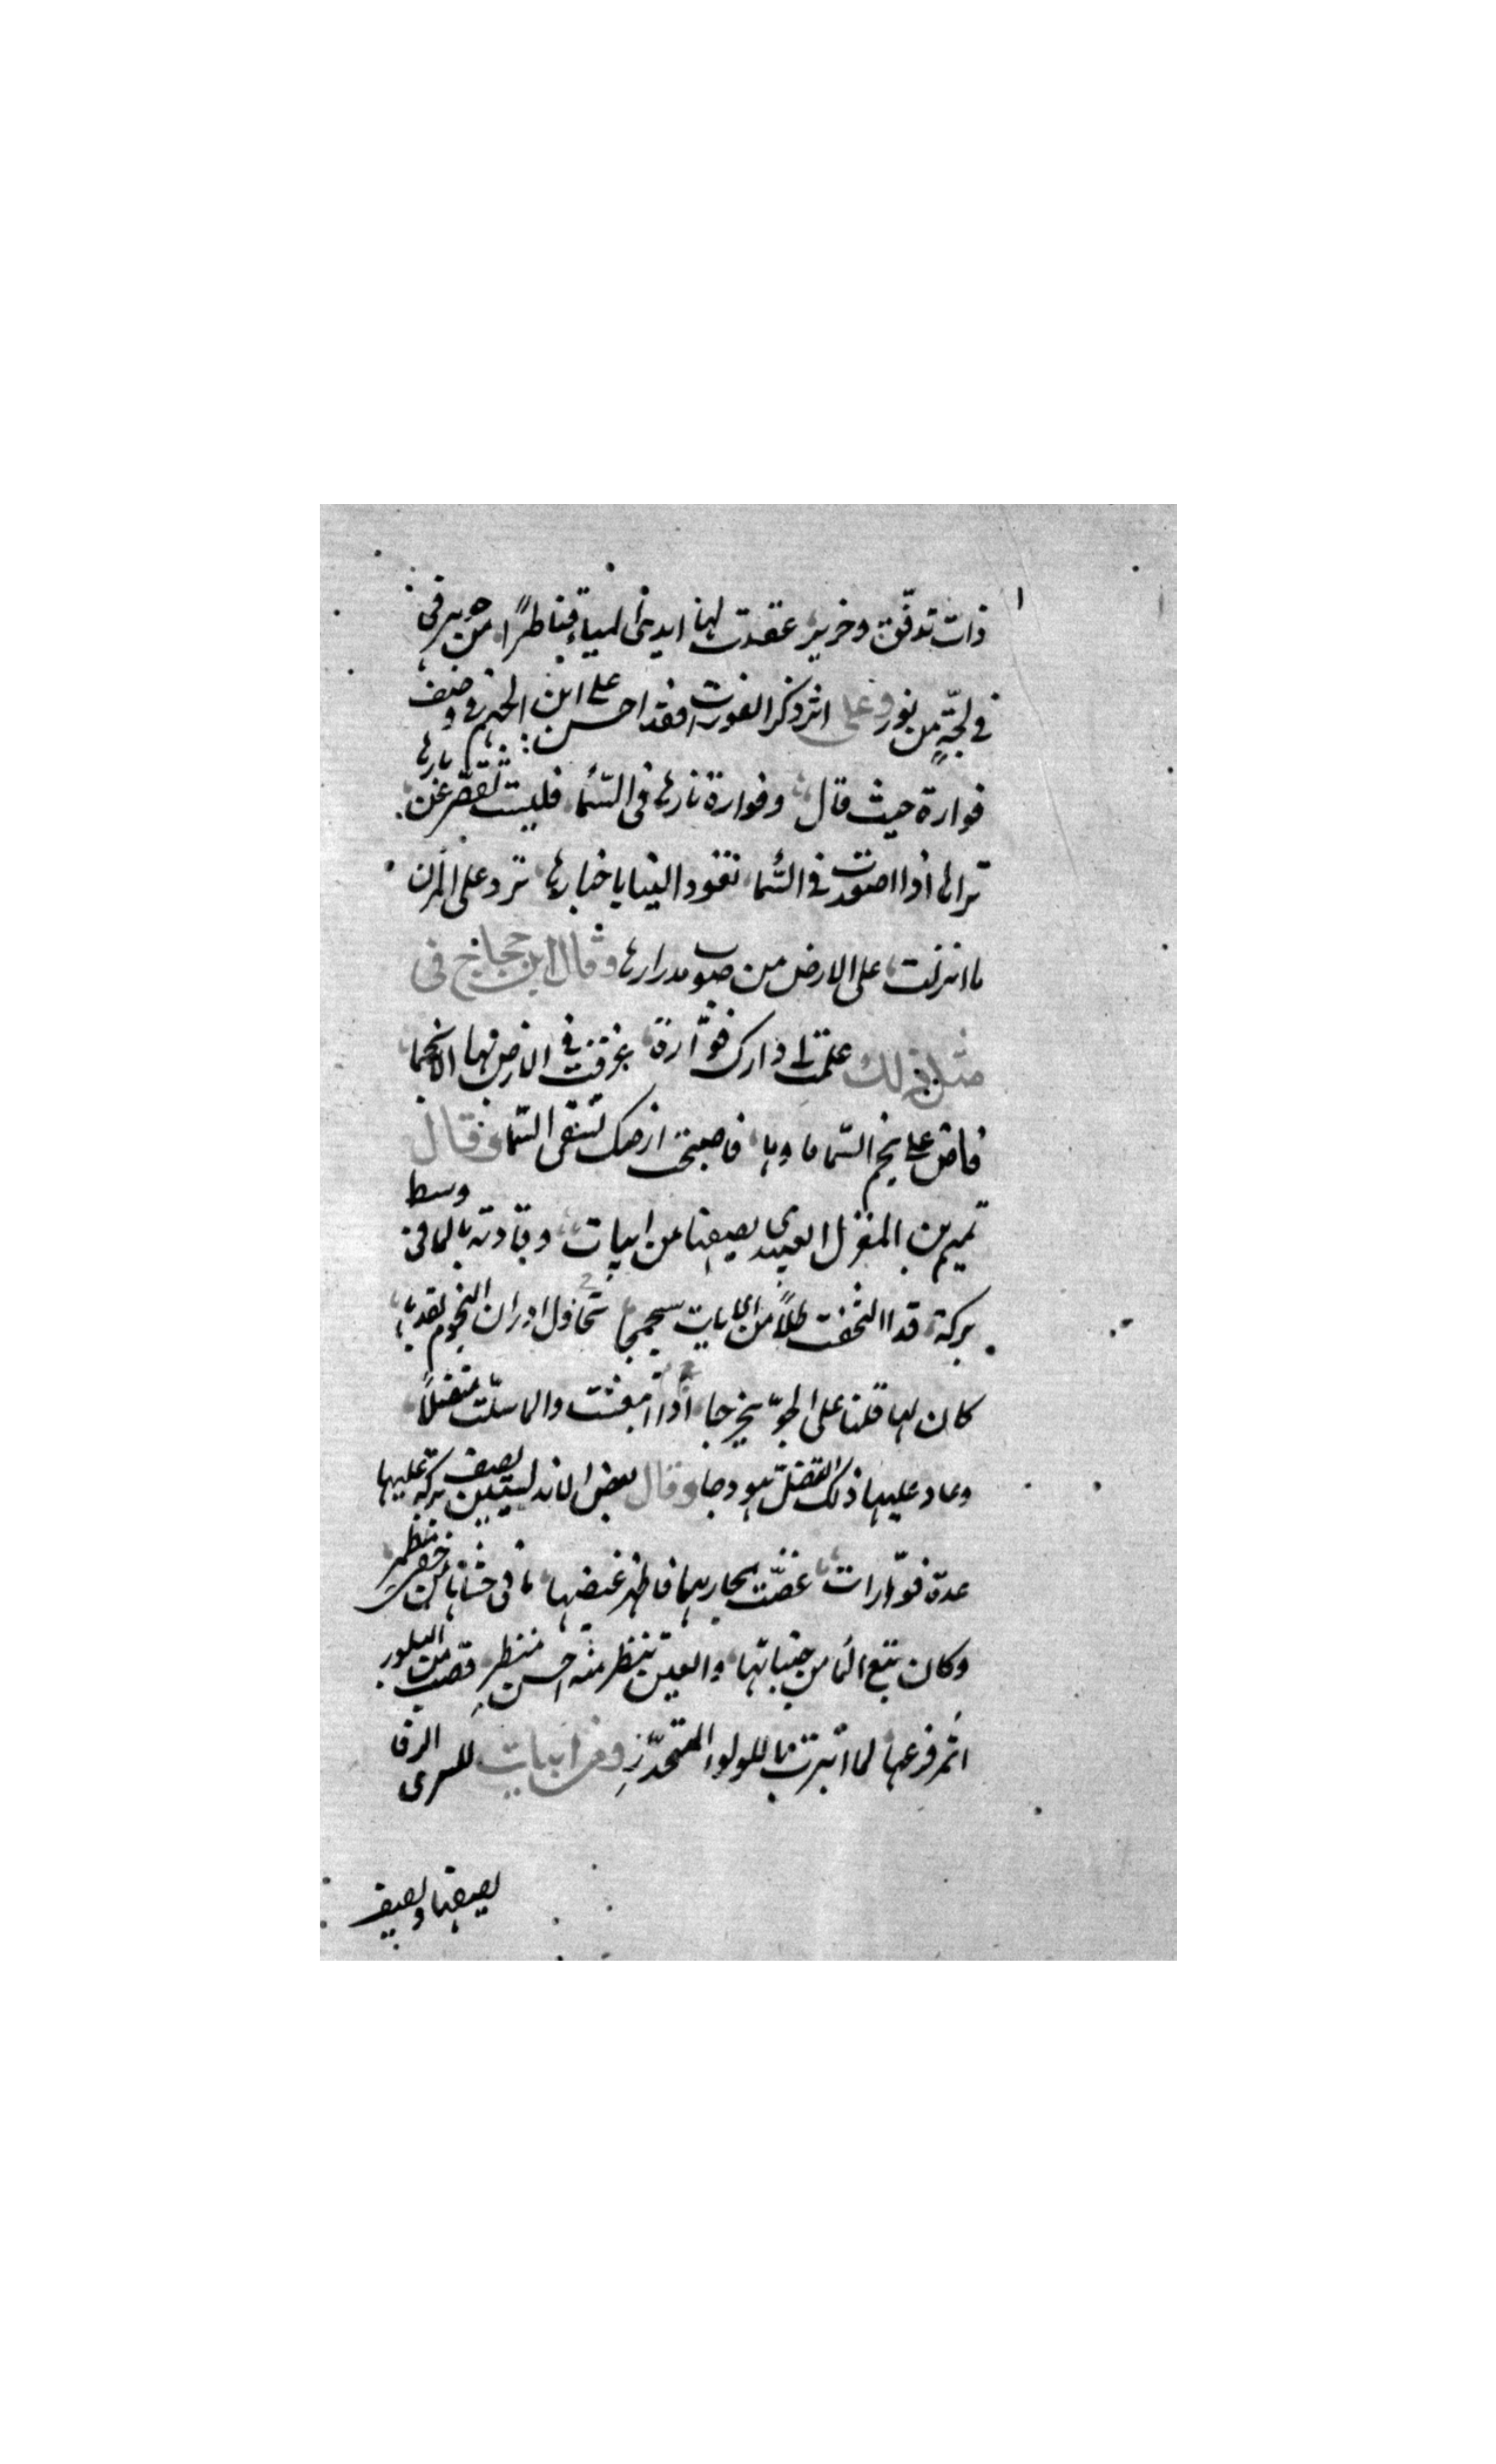 ذات تدفّق وخرير عقدت لها ايدى المياه قناطرًا من جوهر فى
فى لجّةٍ من نور وعلى اثر ذكر الفورات فقد احسن على ابن الجهم فى وصف
فوارة حيث قال وفوارة ثارها فى السّما فليست تقصّر عن ثارها
تراها اذا اصعدت فى السّما تعود الينا باخبارها ترد على المزن
ما انزلت على الارض من صوب مدرارها وقال ابن حجاج فى
مثل ذلك علمت دارك فوّارة غرقت فى الارض بها الانجما
فاض على نجم السّما ماوها فاصبحت ارضك تسقى السّما وقال
تميم بن المعز العبيدى يصفها من ابيات وقاذفة بالما فى وسط
بركة قد التحفت ظلًا من سجسجا تحاول ادراك النجوم بقذفها
كان لها قلبا على الجوّ اذا انبعثت بالما سلّت منصلًا
وعاد عليها ذلك النصل هودجا وقال بعض الاندلسيين يصف بركة عليها
عدة فوّارات غضبت مجاريها فاظهر غيضها ما فى حشاها من خفى مضمر
وكان نبع الما من جنباتها والعين تنظر منه احسن منظر قضب من البلور
اثمر فرعها لما انتهت باللولو المتحدّر ومن ابيات للسرى الرفا
يصفها ويصف